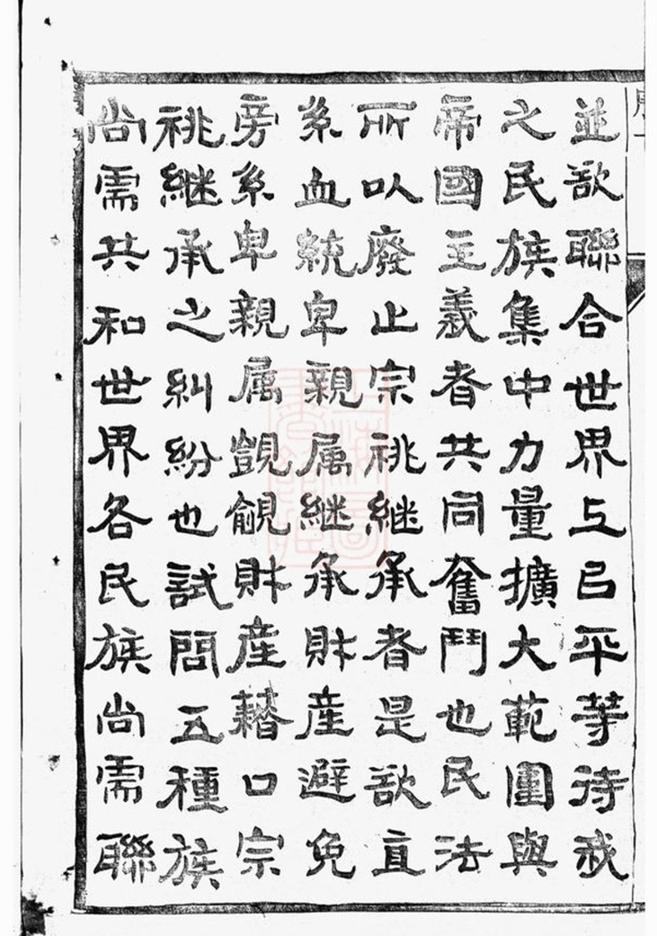 並欲聯合世界上㠯平等待我
之民族集中力量擴大範圍與
帝國主義者共同奮鬥也民法
所以廢止宗祧継承者是欲直
系血統卑親属継承財産避免
旁系卑親属覬覦財産藉口宗
祧継承之糾紛也試問五種族
尚需共和世界各民族尚需聯